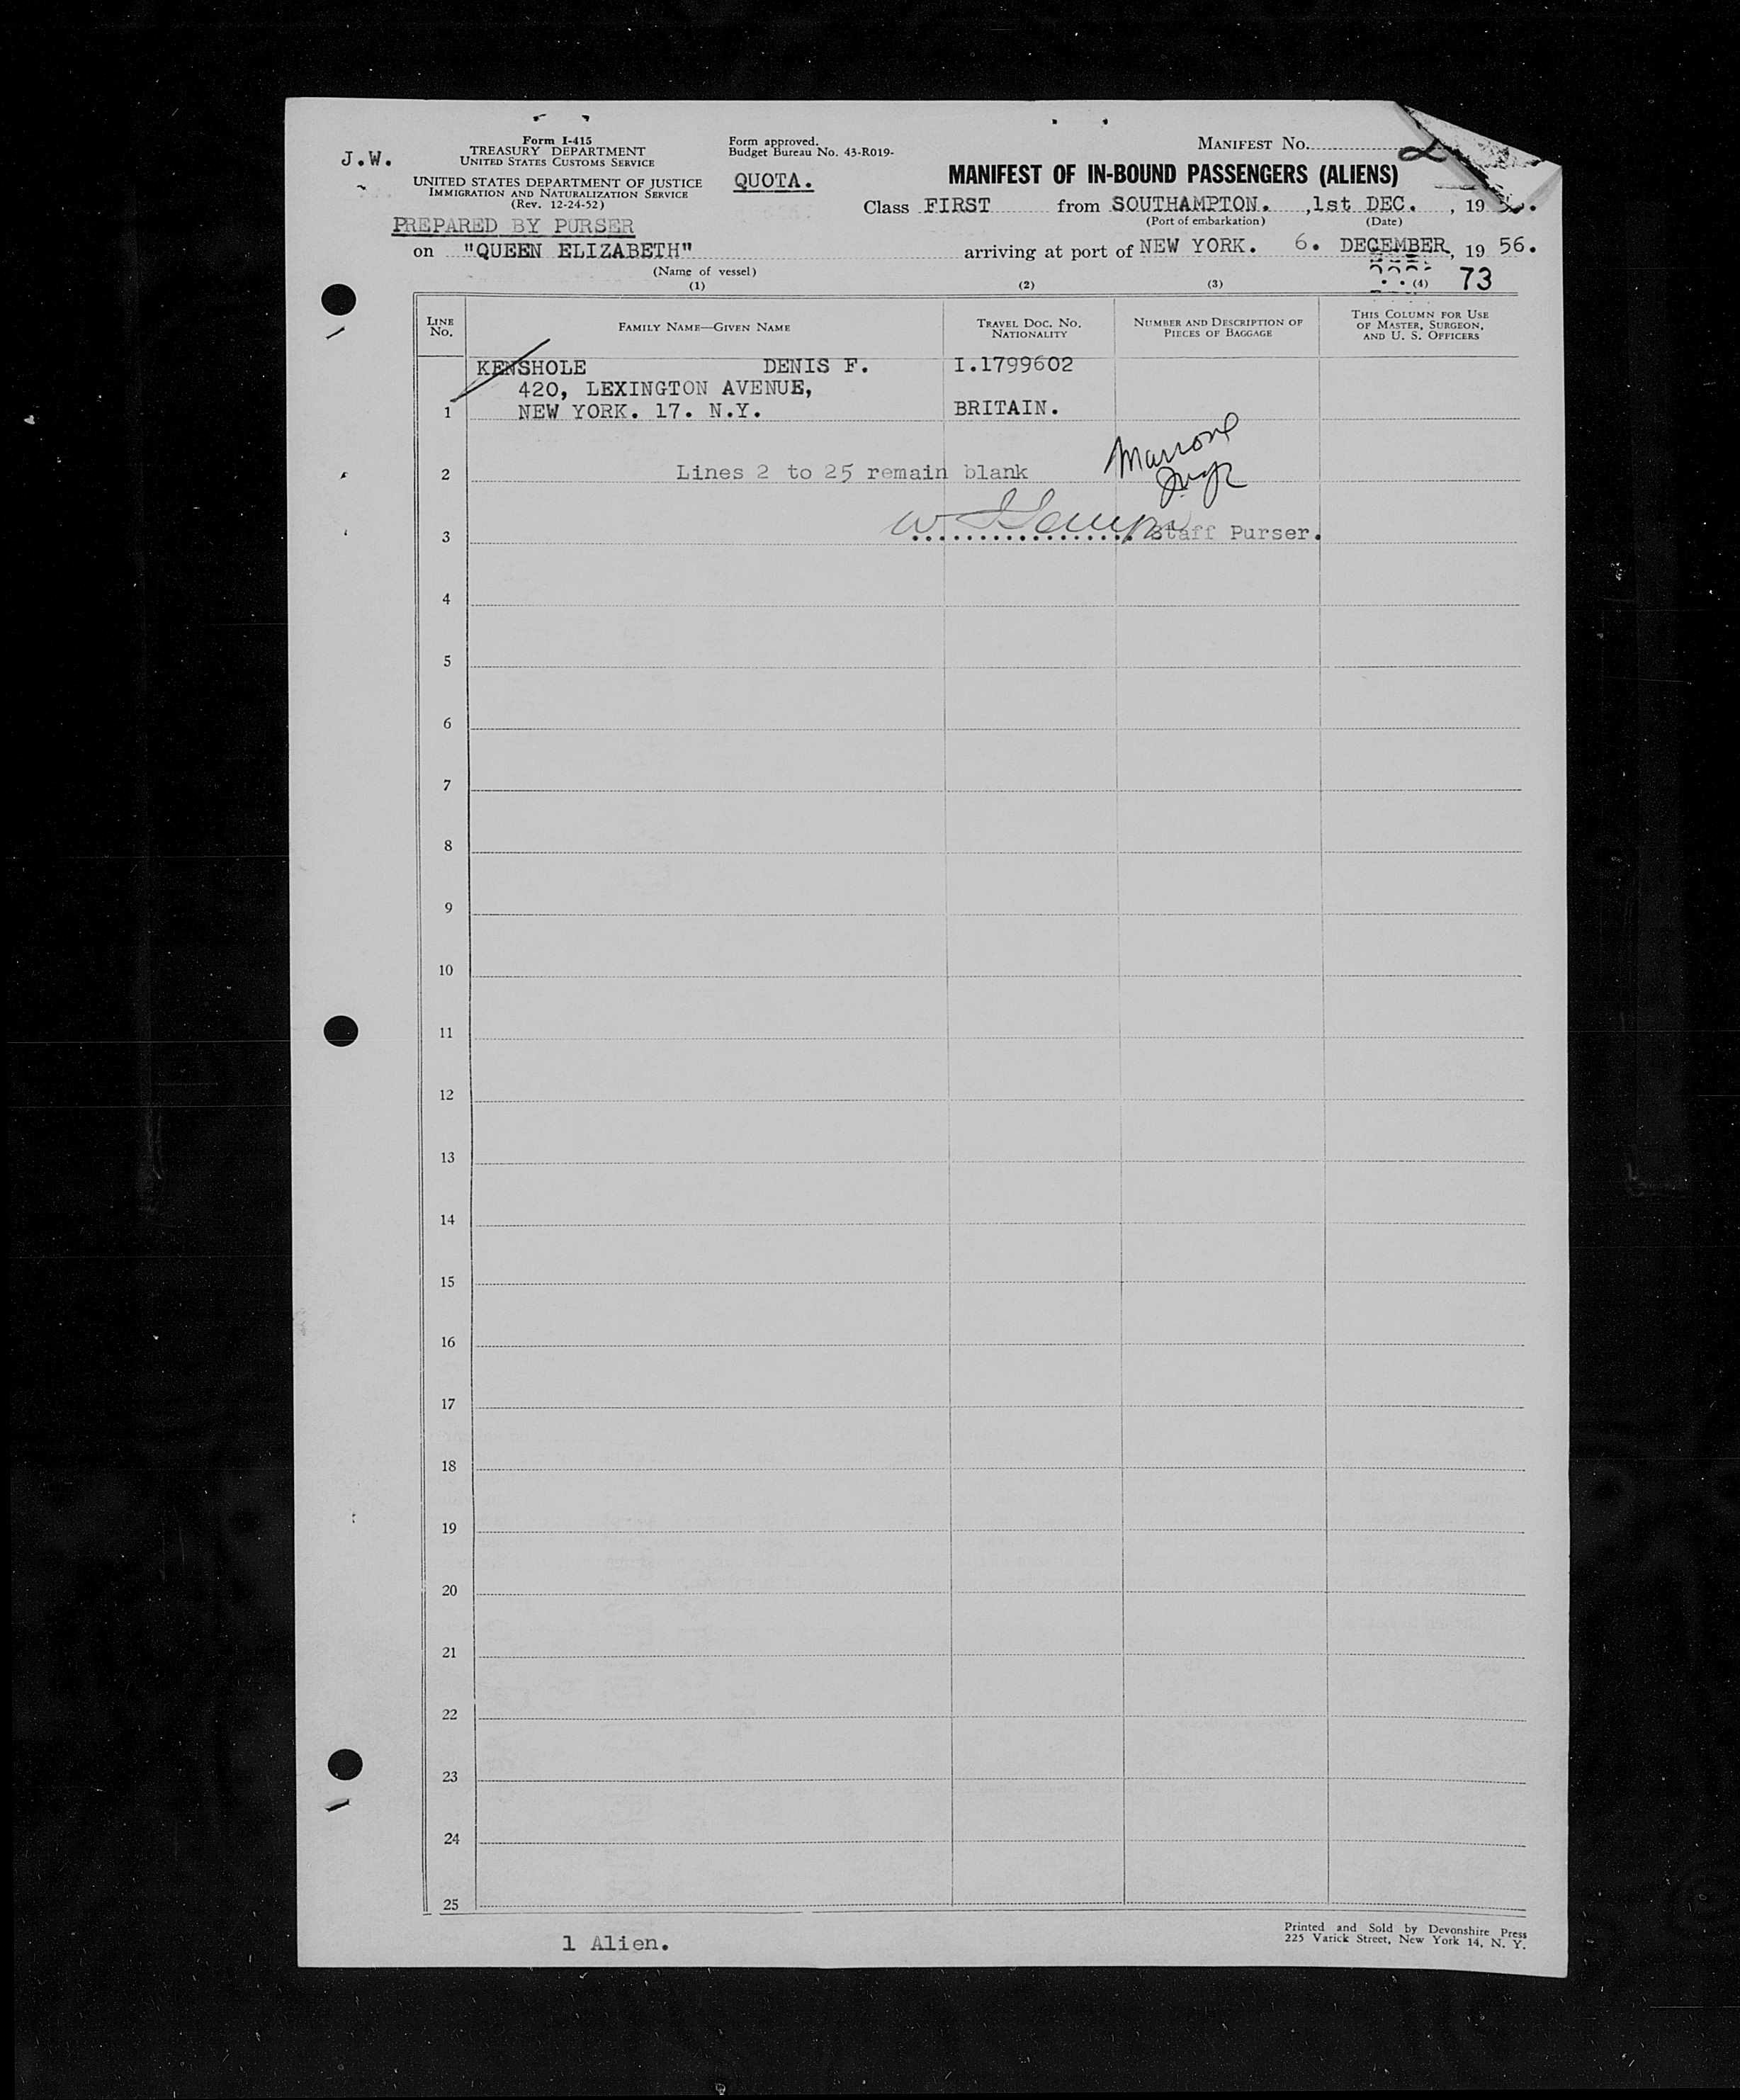 J.W.
Form I-415
TREASURY DEPARTMENT
UNITED STATES CUSTOMS SERVICE
UNITED STATES DEPARTMENT OF JUSTICE
IMMIGRATION AND NATURALIZATION SERVICE
(Rev. 12-24-52)
PREPARED BY PURSER
Form approved.
Budget Bureau No. 43-R019-
QUOTA.
MANIFEST NO. 2
MANIFEST OF IN-BOUND PASSENGERS (ALIENS)
Class FIRST from SOUTHAMPTON. , 1st DEC. , 19
(Port of embarkation) (Date)
on "QUEEN ELIZABETH" arriving at port of NEW YORK. 6. DECEMBER, 19 56.
(Name of vessel)
73
(1) (2) (3) (4)
LINE NO.
FAMILY NAME—GIVEN NAME
TRAVEL DOC. NO. NATIONALITY
NUMBER AND DESCRIPTION OF PIECES OF BAGGAGE
THIS COLUMN FOR USE OF MASTER, SURGEON, AND U. S. OFFICERS
KENSHOLE DENIS F. I.1799602
420, LEXINGTON AVENUE,
1 NEW YORK. 17. N.Y. BRITAIN.
Marrone
2 Lines 2 to 25 remain blank
3 Staff Purser.
4
5
6
7
8
9
10
11
12
13
14
15
16
17
18
19
20
21
22
23
24
25
1 Alien.
Printed and Sold by Devonshire Press
225 Varick Street, New York 14, N. Y.